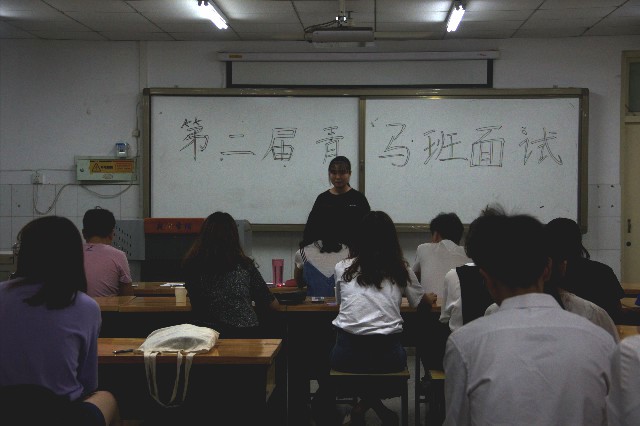 第二届青马班面试